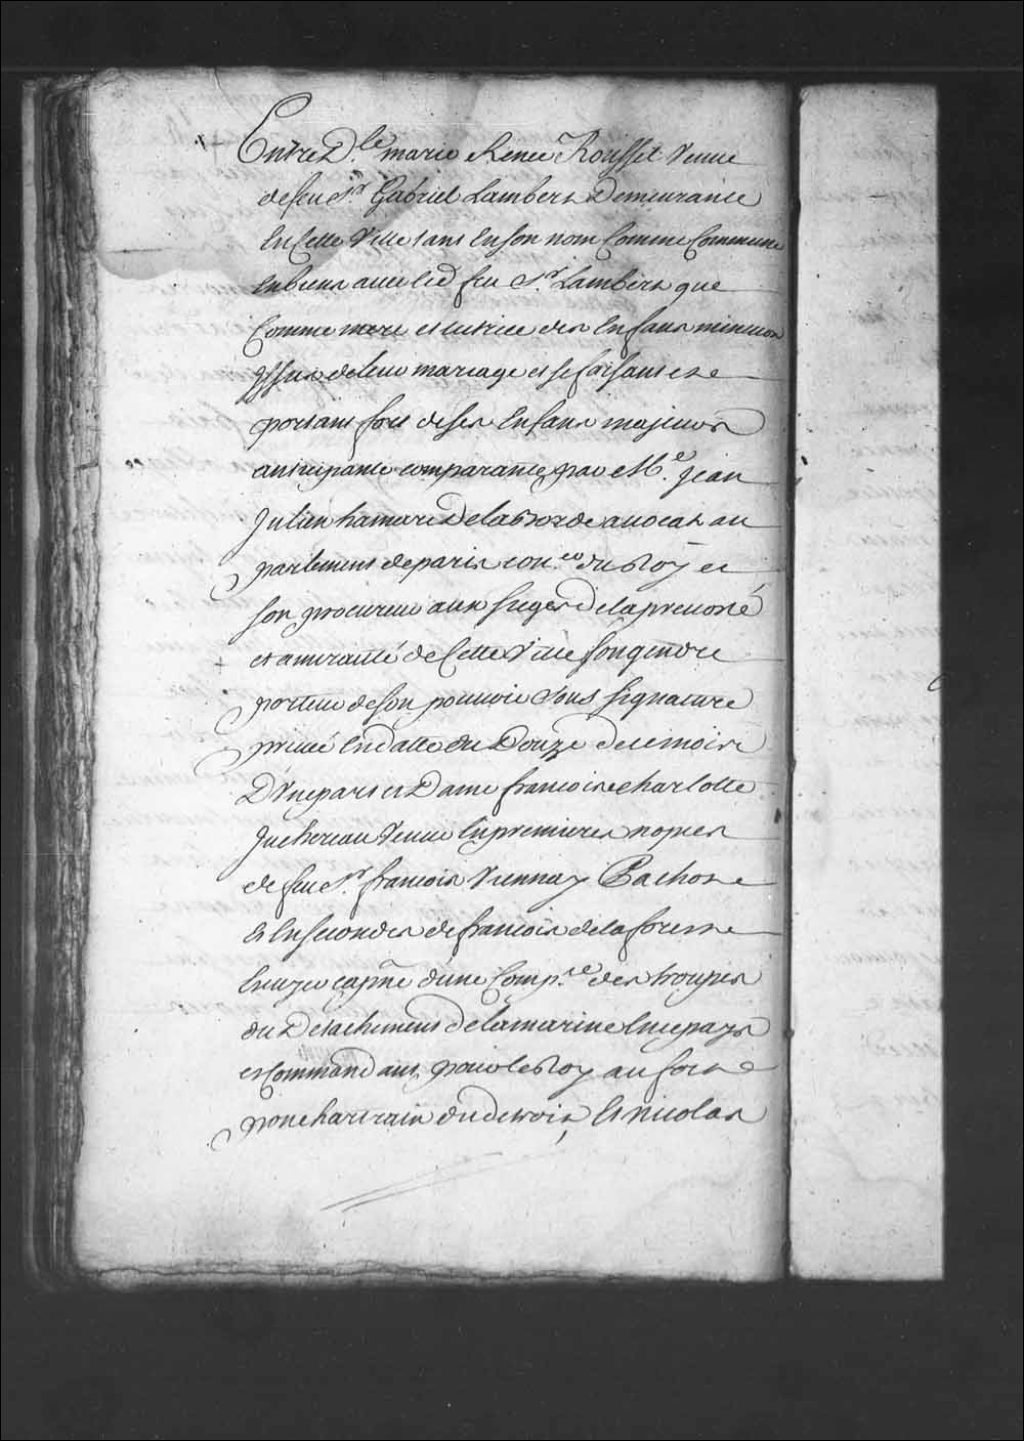 Entre D.le marie Renée Rousset veuve
de feu Sr. Gabriel Lambert Demeurante
En Cette Ville tant En son nom Comme Commune
En biens avec led feu Sr. Lambert que
Comme mere et tutrice des Enfans mineurs
Issus de leur mariage et se faisant et
portant fort de ses Enfans majeurs
anticipante comparante par Me. Jean
Julien hamare Delaborde avocat au
parlement de paris con.er du Roy et
son procureur aux sieges de la prevosté
et amirauté de Cette Ville son gendre
porteur de son pouvoir sous signature
privée En datte du Douze de ce mois
D'Une part et Dame francoise charlotte
Juchereau Veuve En premieres nopces
de feu Sr. francois Viennay Pachot
Et En secondes de francois de la forest
Ecuyer capne d'une Comp.ie des troupes
du Detachement de la marine En ce pays
et Commandant pour le Roy au fort
ponchartrain du detroit, Et nicolas